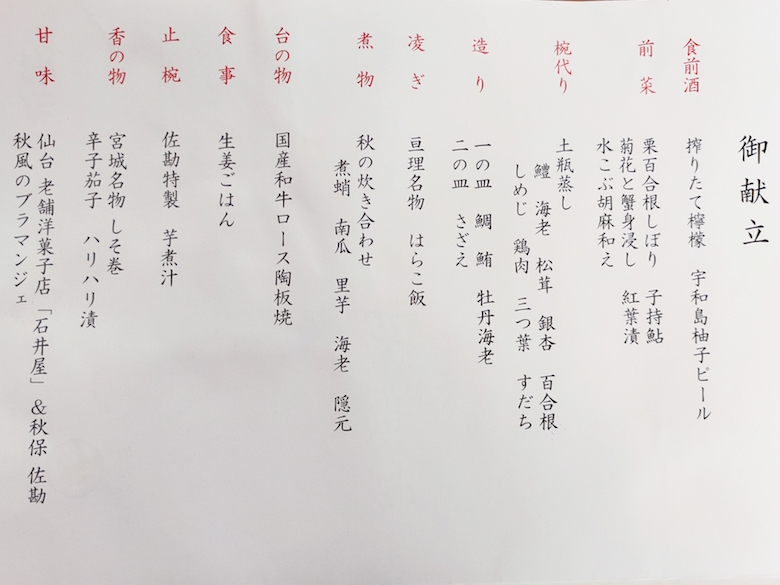 御献立
食前酒
搾りたて檸檬 宇和島柚子ピール
前菜
栗百合根しぼり 子持鮎
菊花と蟹身浸し 紅葉漬
水こぶ胡麻和え
椀代り
土瓶蒸し
鱧 海老 松茸 銀杏 百合根
しめじ 鶏肉 三つ葉 すだち
造り
一の皿 鯛 鮪 牡丹海老
二の皿 さざえ
凌ぎ
亘理名物 はらこ飯
煮物
秋の炊き合わせ
煮蛸 南瓜 里芋 海老 隠元
台の物
国産和牛ロース陶板焼
食事
生姜ごはん
止椀
佐勘特製 芋煮汁
香の物
宮城名物 しそ巻
辛子茄子 ハリハリ漬
甘味
仙台 老舗洋菓子店「石井屋」&秋保 佐勘
秋風のブラマンジェ